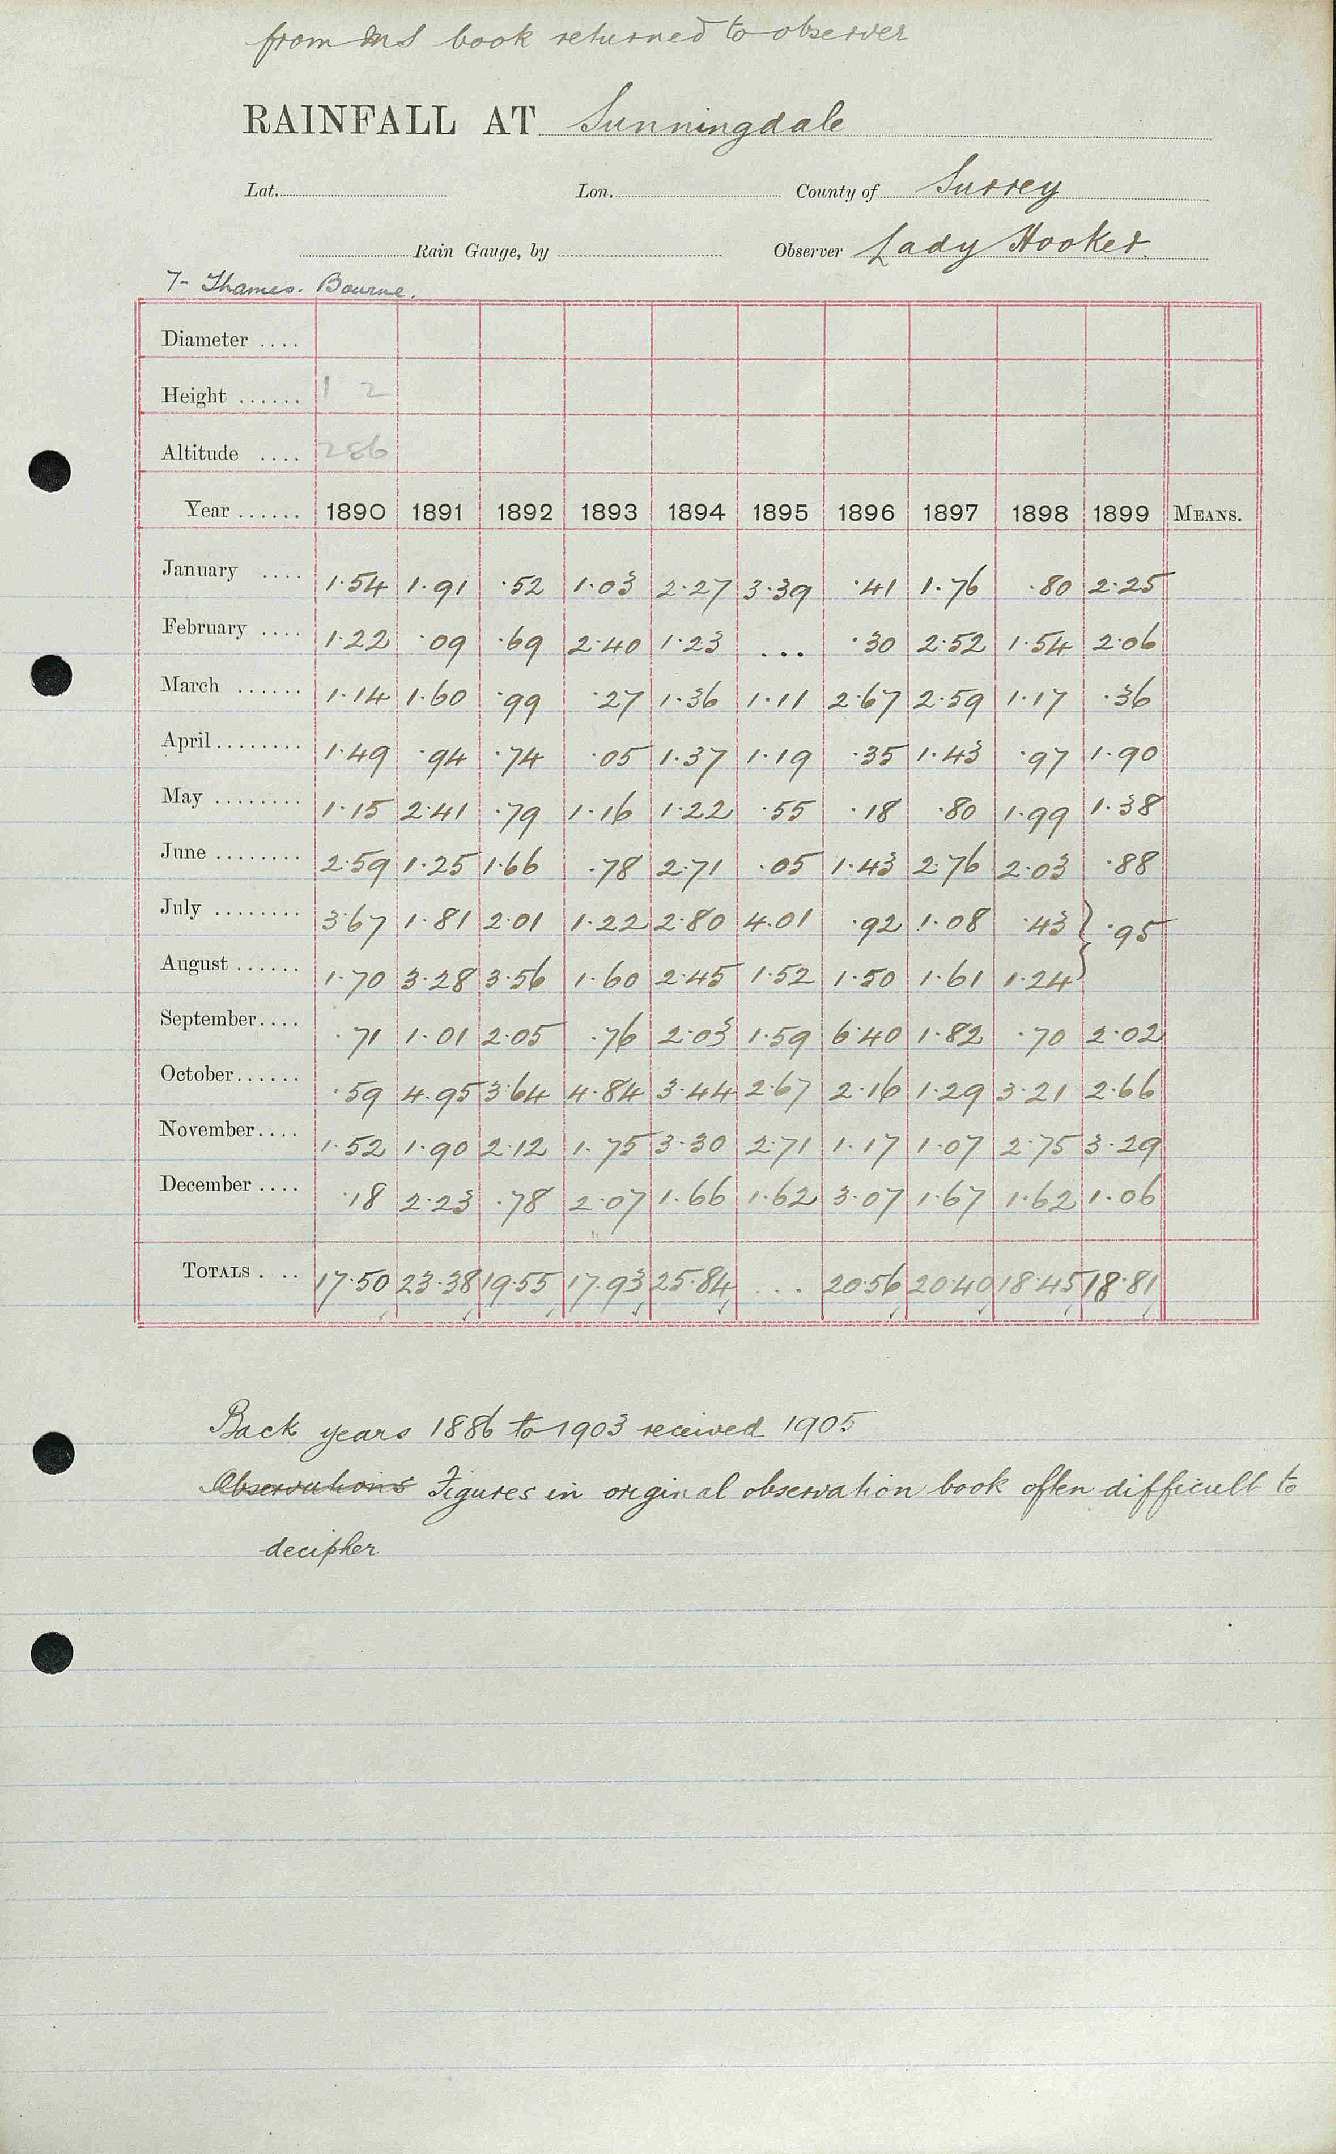 from MS book returned to observer
RAINFALL AT Sunningdale
Lat. Lon. County of Surrey
Rain Gauge, by Observer Lady Hooker.
7- Thames. Bourne.
Diameter ....
Height ...... 1 2
Altitude .... 286
Year ...... 1890 1891 1892 1893 1894 1895 1896 1897 1898 1899 MEANS.
January .... 1.54 1.91 .52 1.03 2.27 3.39 .41 1.76 .80 2.25
February .... 1.22 .09 .69 2.40 1.23 ... .30 2.52 1.54 2.06
March ...... 1.14 1.60 .99 .27 1.36 1.11 2.67 2.59 1.17 .36
April ........ 1.49 .94 .74 .05 1.37 1.19 .35 1.43 .97 1.90
May ........ 1.15 2.41 .79 1.16 1.22 .55 .18 .80 1.99 1.38
June ........ 2.59 1.25 1.66 .78 2.71 .05 1.43 2.76 2.03 .88
July ........ 3.67 1.81 2.01 1.22 2.80 4.01 .92 1.08 .43 } .95
August ...... 1.70 3.28 3.56 1.60 2.45 1.52 1.50 1.61 1.24
September .... .71 1.01 2.05 .76 2.03 1.59 6.40 1.82 .70 2.02
October ...... .59 4.95 3.64 4.84 3.44 2.67 2.16 1.29 3.21 2.66
November .... 1.52 1.90 2.12 1.75 3.30 2.71 1.17 1.07 2.75 3.29
December .... .18 2.23 .78 2.07 1.66 1.62 3.07 1.67 1.62 1.06
TOTALS .... 17.50 23.38 19.55 17.93 25.84 ... 20.56 20.40 18.45 18.81
Back years 1886 to 1903 received 1905
Observations Figures in original observation book often difficult to
decipher